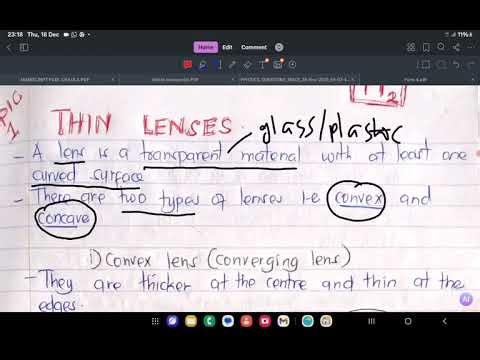 23:18 Thu, 18 Dec
Home
Form 4.pdf
TOPIC 1
THIN LENSES.
glass/plastic
- A lens is a transparent material with at least one
curved surface
- There are two types of lenses i.e convex and
concave
1) Convex lens (converging lens)
- They are thicker at the centre and thin at the
edges.
AI